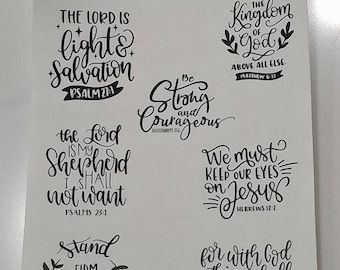 THE LORD IS
light &
Salvation
PSALM 27:1
THE
Kingdom
OF
God
ABOVE ALL ELSE.
MATTHEW 6:33
Be
Strong
and
Courageous
the Lord
IS MY
Shepherd
I SHALL
not want
PSALMS 23:1
We must
KEEP OUR EYES
ON
Jesus
HEBREWS 12:2
stand
FIRM
for with God